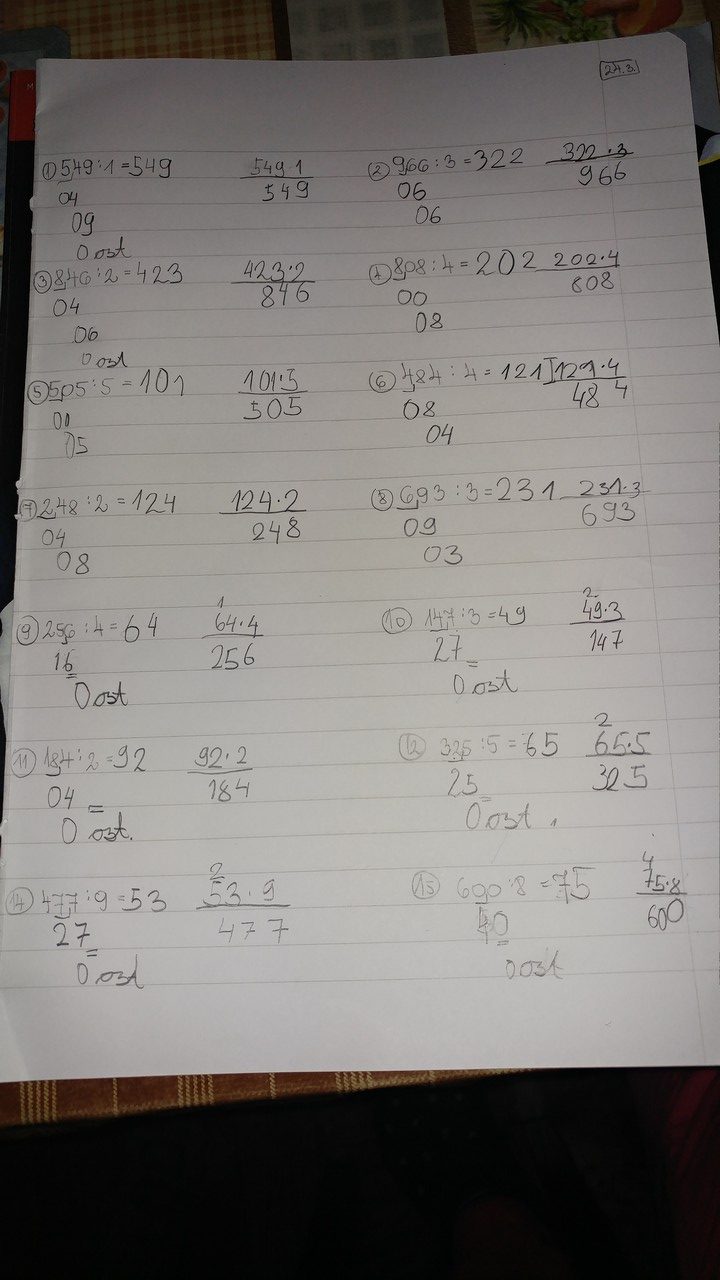 24.3.
① 549:1=549 549·1 ② 966:3=322 322·3
04 549 06 966
09 06
0 ost
③ 846:2=423 423·2 ④ 808:4=202 202·4
04 846 00 808
06 08
0 ost
⑤ 505:5=101 101·5 ⑥ 484:4=121 121·4
00 505 08 484
05 04
⑦ 248:2=124 124·2 ⑧ 693:3=231 231·3
04 248 09 693
08 03
1 2
⑨ 256:4=64 64·4 ⑩ 147:3=49 49·3
16 256 27 147
0 ost 0 ost
2
⑪ 184:2=92 92·2 ⑫ 325:5=65 65·5
04 184 25 325
0 ost. 0 ost.
2 4
⑭ 477:9=53 53·9 ⑮ 600:8=75 75·8
27 477 40 600
0 ost 0 ost